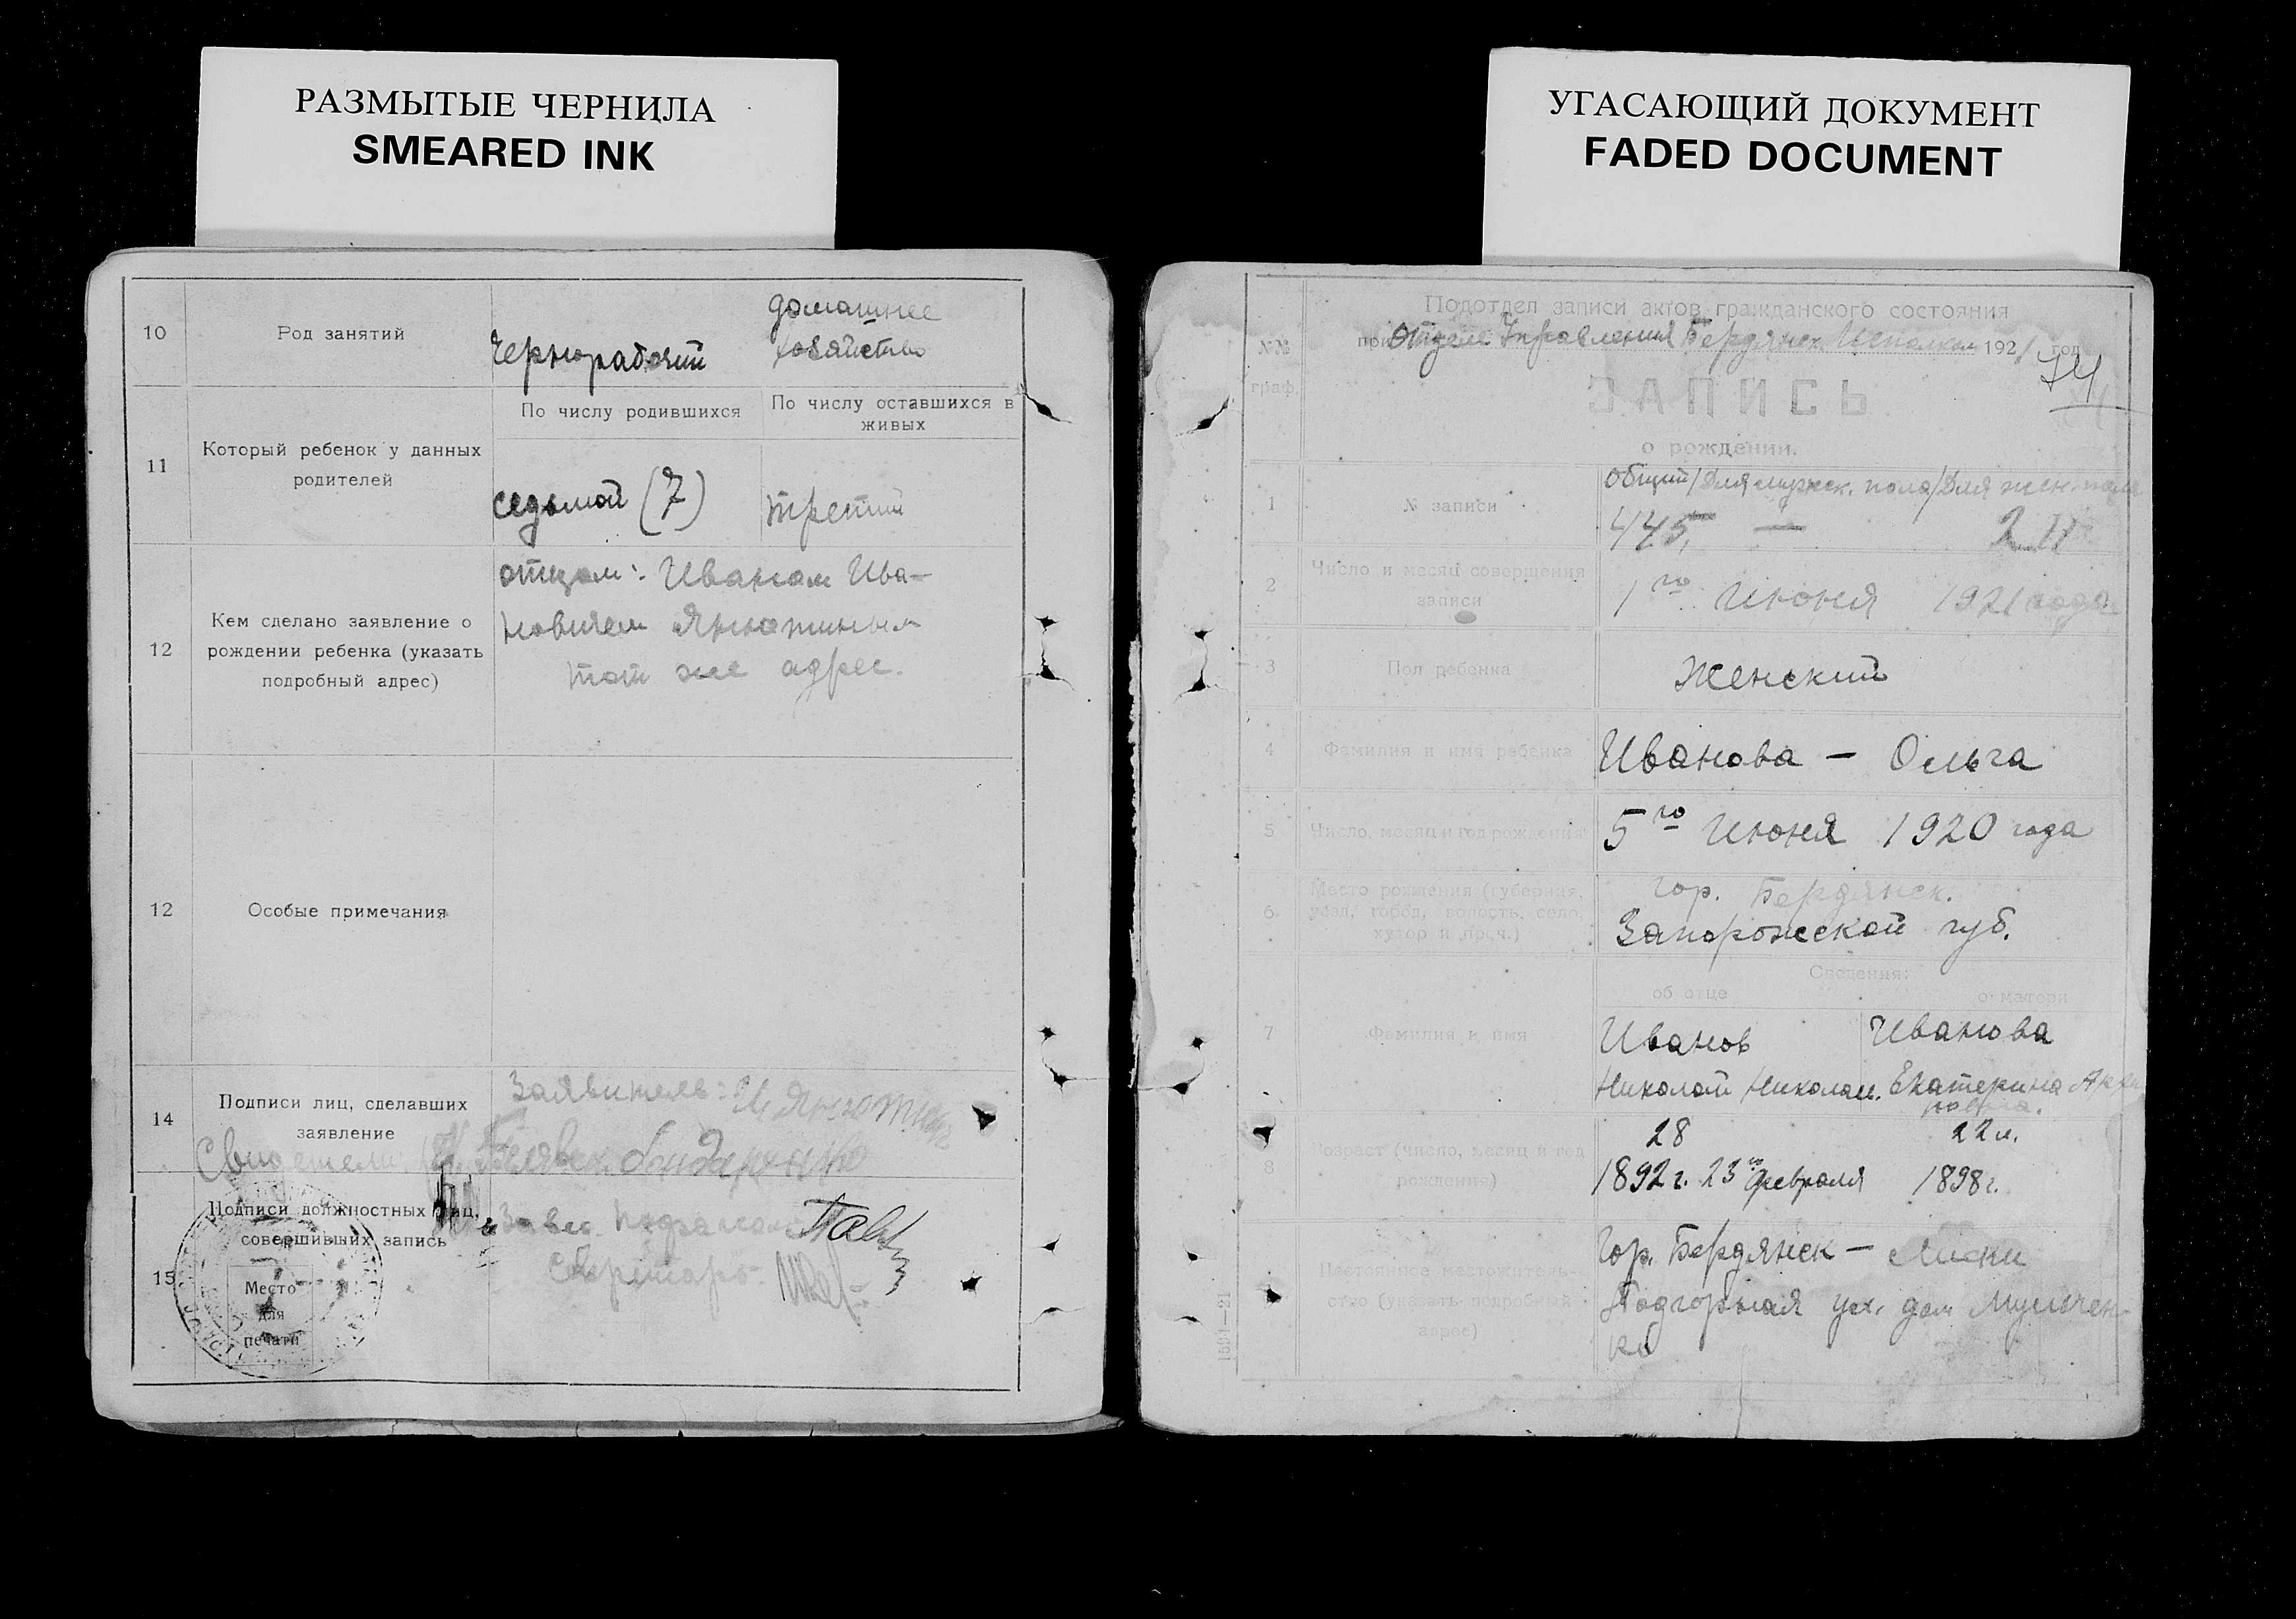 РАЗМЫТЫЕ ЧЕРНИЛА
SMEARED INK
10
Род занятий
Чернорабочий
домашнее
хозяйство
11
Который ребенок у данных
родителей
По числу родившихся
По числу оставшихся в
живых
седьмой (7)
третий
12
Кем сделано заявление о
рождении ребенка (указать
подробный адрес)
отцом: Иваном Ива-
новичем Янютиным
тот же адрес.
12
Особые примечания
14
Подписи лиц, сделавших
заявление
Заявитель: И. Янютин
Свидетели:
15
Подписи должностных лиц,
совершивших запись
Место
для
печати
Завед.
Секретарь
УГАСАЮЩИЙ ДОКУМЕНТ
FADED DOCUMENT
Подотдел записи актов гражданского состояния
при Отделе Управления Бердянск. Исполком 1921 год
74
№№
граф.
ЗАПИСЬ
о рождении.
1
№ записи
Общий/Для мужск. пола/Для жен. пола
445, —
2
Число и месяц совершения
записи
1го Июня 1921 года
3
Пол ребенка
Женский
4
Фамилия и имя ребенка
Иванова — Ольга
5
Число, месяц и год рождения
5го Июня 1920 года
6
Место рождения (губерния,
уезд, город, волость, село,
хутор и проч.)
гор. Бердянск.
Запорожской губ.
Сведения:
об отце
о матери
7
Фамилия и имя
Иванов
Николай Николаев.
Иванова
Екатерина
8
Возраст (число, месяц и год
рождения)
28
1892 г. 23го февраля
22 л.
1898 г.
Постоянное местожитель-
ство (указать подробный
адрес)
Гор. Бердянск — Лиски
Подгорная ул. дом
1591—21